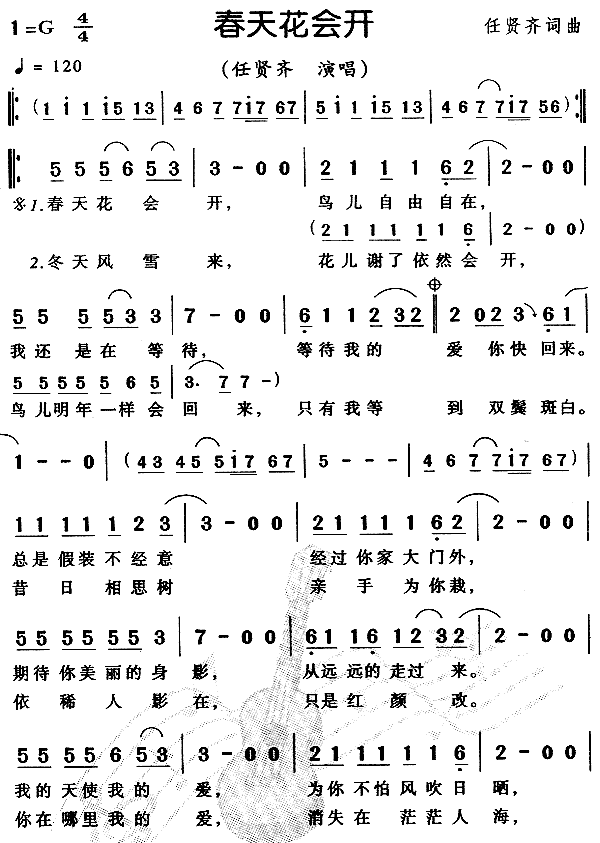 1=G 4/4 春天花会开 任贤齐词曲
♩= 120 (任贤齐 演唱)
‖: (1 i 1 i5 13 | 4 6 7 7i 7 67 | 5 i 1 i5 13 | 4 6 7 7i7 56) :‖
‖: 5 5 5 6 5 3 | 3 - 0 0 | 2 1 1 1 6 2 | 2 - 0 0 |
1.春天花 会 开, 鸟儿 自由 自在,
(21 11 11 6 | 2 - 00)
2.冬天风 雪 来, 花儿谢了依然会 开,
5 5 5 5 3 3 | 7 - 0 0 | 6 1 1 2 3 2 ‖ 2 02 3 6 1 |
我还 是在 等待, 等待我的 爱 你快回来。
55 55 5 6 5 | 3. 7 7 -)
鸟儿明年一样会 回 来, 只有我等 到 双鬓 斑白。
1 - - 0 | (43 45 5i7 67 | 5 - - - | 4 6 7 7i7 67) |
11 11 12 3 | 3 - 0 0 | 21 11 11 6 2 | 2 - 0 0 |
总是 假装 不 经意 经过 你家 大门外,
昔 日 相思树 亲 手 为你栽,
55 55 55 3 | 7 - 0 0 | 61 16 12 32 | 2 - 0 0 |
期待 你美 丽的 身 影, 从远 远的 走过 来。
依 稀 人 影 在, 只是 红 颜 改。
55 55 6 53 | 3 - 0 0 | 21 11 11 6 | 2 - 0 0 |
我的 天使 我 的 爱, 为你 不怕 风吹 日 晒,
你在 哪里 我 的 爱, 消失在 茫茫 人 海,